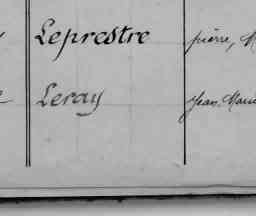 Leprestre pierre, M
Leray Jean Marie